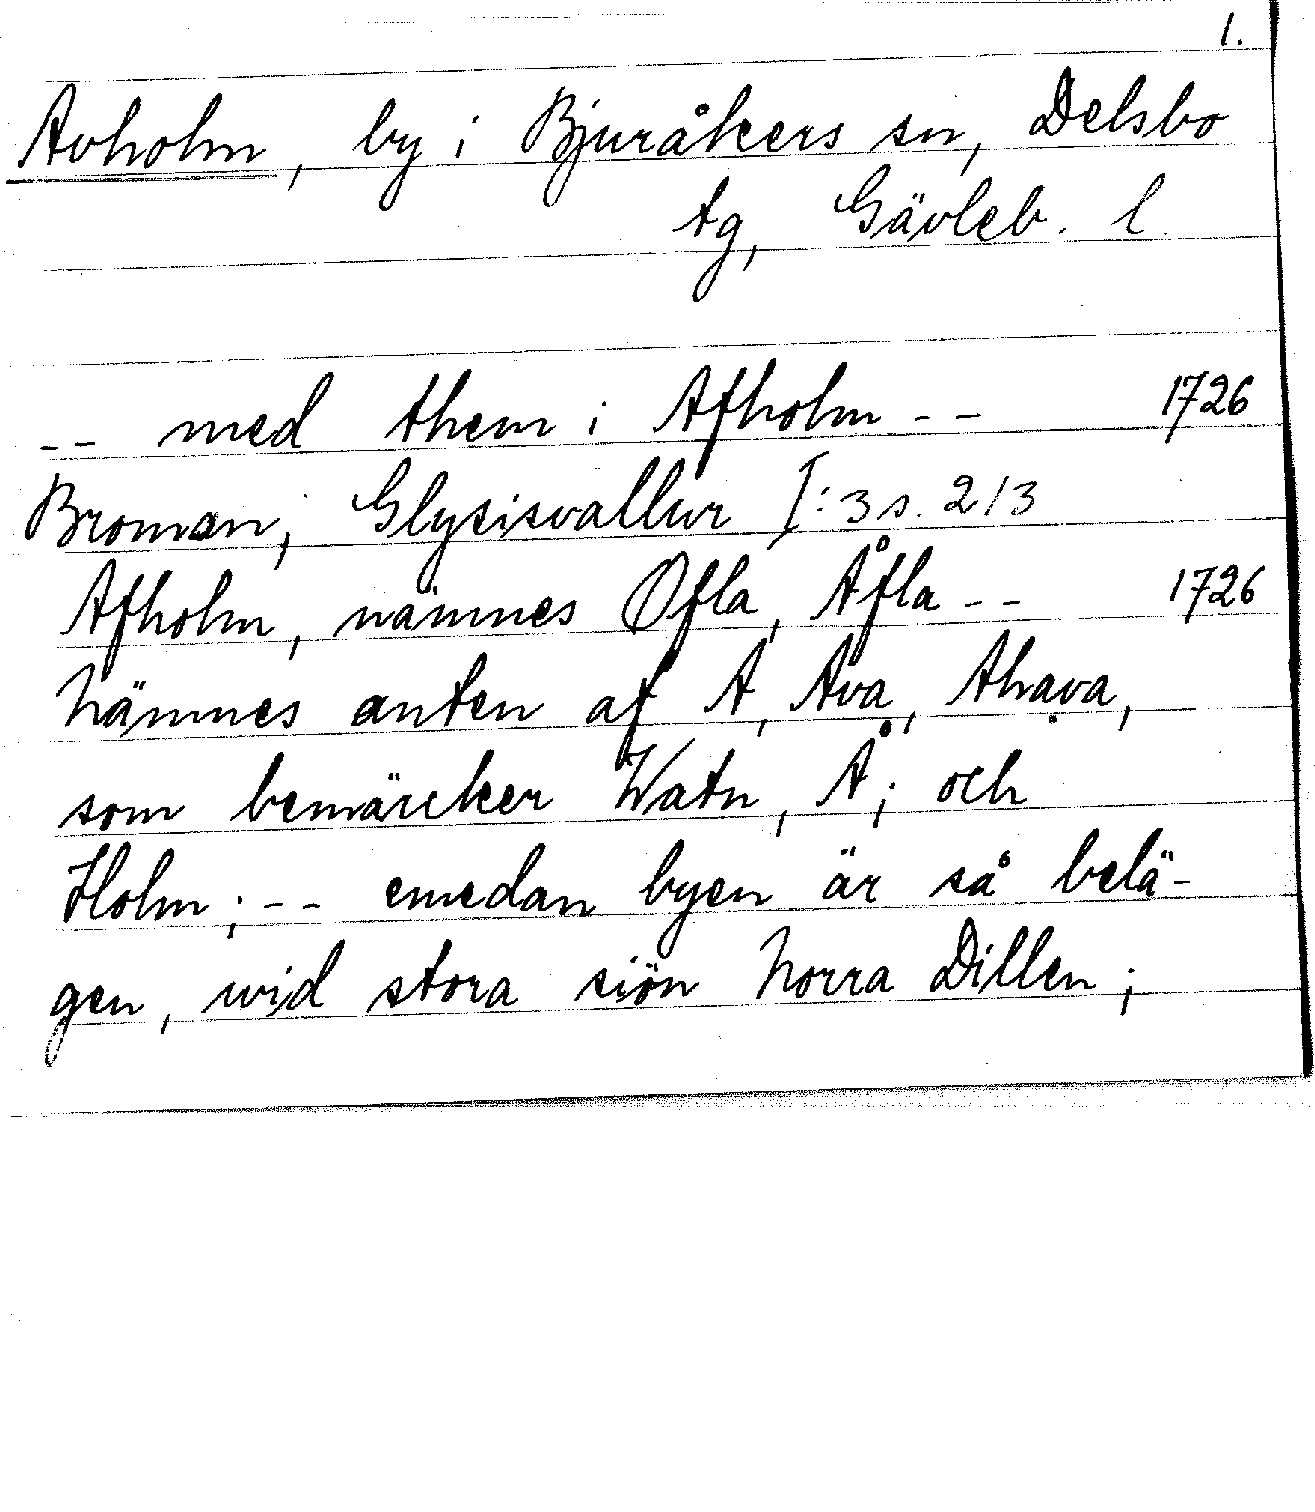 1.
Avholm, by i Bjuråkers sn, Delsbo
tg, Gävleb. l.
-- med them i Afholm -- 1726
Broman, Glysisvallur I:3 s. 213
Afholm, nämnes Ofla, Åfla -- 1726
Nämnes anten af A, Ava, Ahava,
som bemärcker Watn, Å; och
Holm; -- emedan byen är så belä-
gen, wid stora siön Norra Dillen;